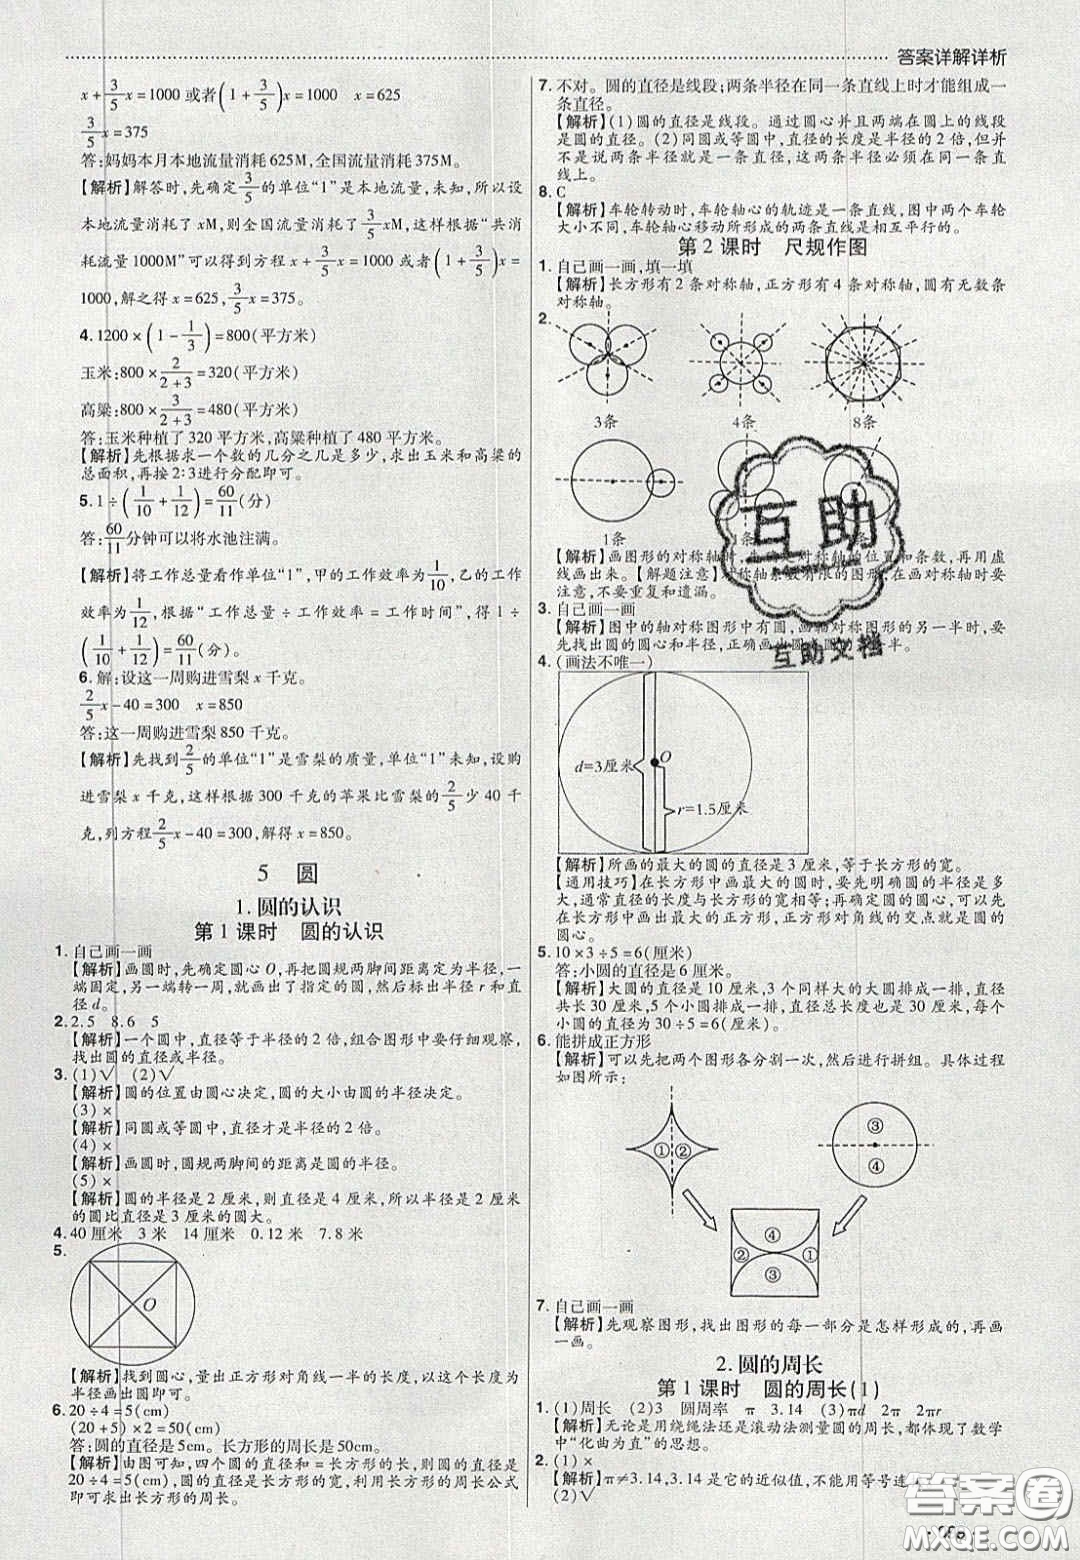 答案详解详析
x+3/5x=1000 或者(1+3/5)x=1000　x=625
3/5x=375
答:妈妈本月本地流量消耗625M,全国流量消耗375M。
【解析】解答时,先确定3/5的单位“1”是本地流量,未知,所以设
本地流量消耗了xM,则全国流量消耗了3/5xM,这样根据“共消
耗流量1000M”可以得到方程x+3/5x=1000或者(1+3/5)x=
1000,解之得x=625,3/5x=375。
4.1200×(1-1/3)=800(平方米)
玉米:800×2/(2+3)=320(平方米)
高粱:800×3/(2+3)=480(平方米)
答:玉米种植了320平方米,高粱种植了480平方米。
【解析】先根据求一个数的几分之几是多少,求出玉米和高粱的
总面积,再按2:3进行分配即可。
5.1÷(1/10+1/12)=60/11(分)
答:60/11分钟可以将水池注满。
【解析】将工作总量看作单位“1”,甲的工作效率为1/10,乙的工作
效率为1/12,根据“工作总量÷工作效率=工作时间”,得1÷
(1/10+1/12)=60/11(分)。
6.解:设这一周购进雪梨x千克。
2/5x-40=300　x=850
答:这一周购进雪梨850千克。
【解析】先找到2/5的单位“1”是雪梨的质量,单位“1”未知,设
购进雪梨x千克,这样根据300千克的苹果比雪梨的2/5少40千
克,列方程2/5x-40=300,解得x=850。
5　圆
1.圆的认识
第1课时　圆的认识
1.自己画一画
【解析】画圆时,先确定圆心O,再把圆规两脚间距离定为半径,一
端固定,另一端转一周,就画出了指定的圆,然后标出半径r和直
径d。
2.2.5　8.6　5
【解析】一个圆中,直径等于半径的2倍,组合图形中要仔细观察,
找出圆的直径或半径。
3.(1)√　(2)√
【解析】圆的位置由圆心决定,圆的大小由圆的半径决定。
(3)×
【解析】同圆或等圆中,直径才是半径的2倍。
(4)×
【解析】画圆时,圆规两脚间的距离是圆的半径。
(5)×
【解析】圆的半径是2厘米,则直径是4厘米,所以半径是2厘米
的圆比直径是3厘米的圆大。
4.40厘米　3米　14厘米　0.12米　7.8米
5.
O
【解析】找到圆心,量出正方形对角线一半的长度,以此长度为
半径画圆即可。
6.20÷4=5(cm)
(20+5)×2=50(cm)
答:圆的直径是5cm。长方形的周长是50cm。
【解析】由图可知,四个圆的直径和=长方形的长,则圆的直径是
20÷4=5(cm),圆的直径是长方形的宽,利用长方形的周长公式
即可求出长方形的周长。
7.不对。圆的直径是线段;两条半径在同一条直线上时才能组成一
条直径。
【解析】(1)圆的直径是线段。通过圆心并且两端在圆上的线段
是圆的直径。(2)同圆或等圆中,直径的长度是半径的2倍,但
并不是说两条半径就是一条直径,这两条半径必须在同一条直
线上。
8.C
【解析】车轮转动时,车轮轴心的轨迹是一条直线,图中两个车轮
大小不同,车轮轴心移动所形成的两条直线是相互平行的。
第2课时　尺规作图
1.自己画一画,填一填
【解析】长方形有2条对称轴,正方形有4条对称轴,圆有无数条
对称轴。
2.
3条　4条　8条
1条　1条
【解析】画图形的对称轴时,先确定对称轴的位置和条数,再用虚
线画出来。【解题注意】对称轴条数有限的图形,在画对称轴时要
注意,不要重复和遗漏。
3.自己画一画
【解析】图中的轴对称图形中有圆,画轴对称图形的另一半时,要
先找出圆的圆心和半径,正确画出圆
互助
互助文档
4.(画法不唯一)
O
d=3厘米
r=1.5厘米
【解析】所画的最大的圆的直径是3厘米,等于长方形的宽。
【通用技巧】在长方形中画最大的圆时,要先明确圆的直径是多
大,通常直径的长度与长方形的宽相等;再确定圆心的位置,可以
先在长方形中画出最大的正方形,正方形对角线的交点就是圆的
圆心。
5.10×3÷5=6(厘米)
答:小圆的直径是6厘米。
【解析】大圆的直径是10厘米,3个同样大的大圆排成一排,直径
共长30厘米,5个小圆排成一排,直径总长度也是30厘米,每个
小圆的直径为30÷5=6(厘米)。
6.能拼成正方形
【解析】可以先把两个图形各分割一次,然后进行拼组。具体过程
如图所示:
①　②　③　④
④　②　①　③
7.自己画一画
【解析】先观察图形,找出图形的每一部分是怎样形成的,再画
一画。
2.圆的周长
第1课时　圆的周长(1)
1.(1)周长　(2)3　圆周率　π　3.14　(3)πd　2π　2πr
【解析】无论是用绕绳法还是滚动法测量圆的周长,都体现了数学
中“化曲为直”的思想。
2.(1)×
【解析】π≠3.14,3.14是它的近似值,不能用等号连
(2)√
答案圈